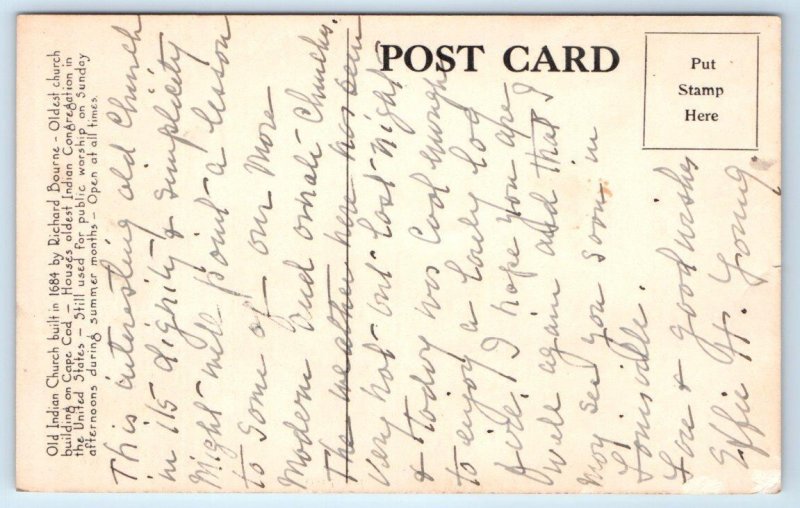 Old Indian Church built in 1684 by Richard Bourne - Oldest church
building on Cape Cod - Houses oldest Indian Congregation in
the United States - Still used for public worship on Sunday
afternoons during summer months - Open at all times.
POST CARD
Put
Stamp
Here
This interesting old Church
in its dignity & simplicity
Might well point a lesson
to some of our More
Modern and ornate Churches.
The weather here has been
very hot but last night
& today was cool enough
to enjoy a lovely log
fire. I hope you are
well again and that I
may see you soon in
Louisville.
Love & good wishes
Effie H. Young.